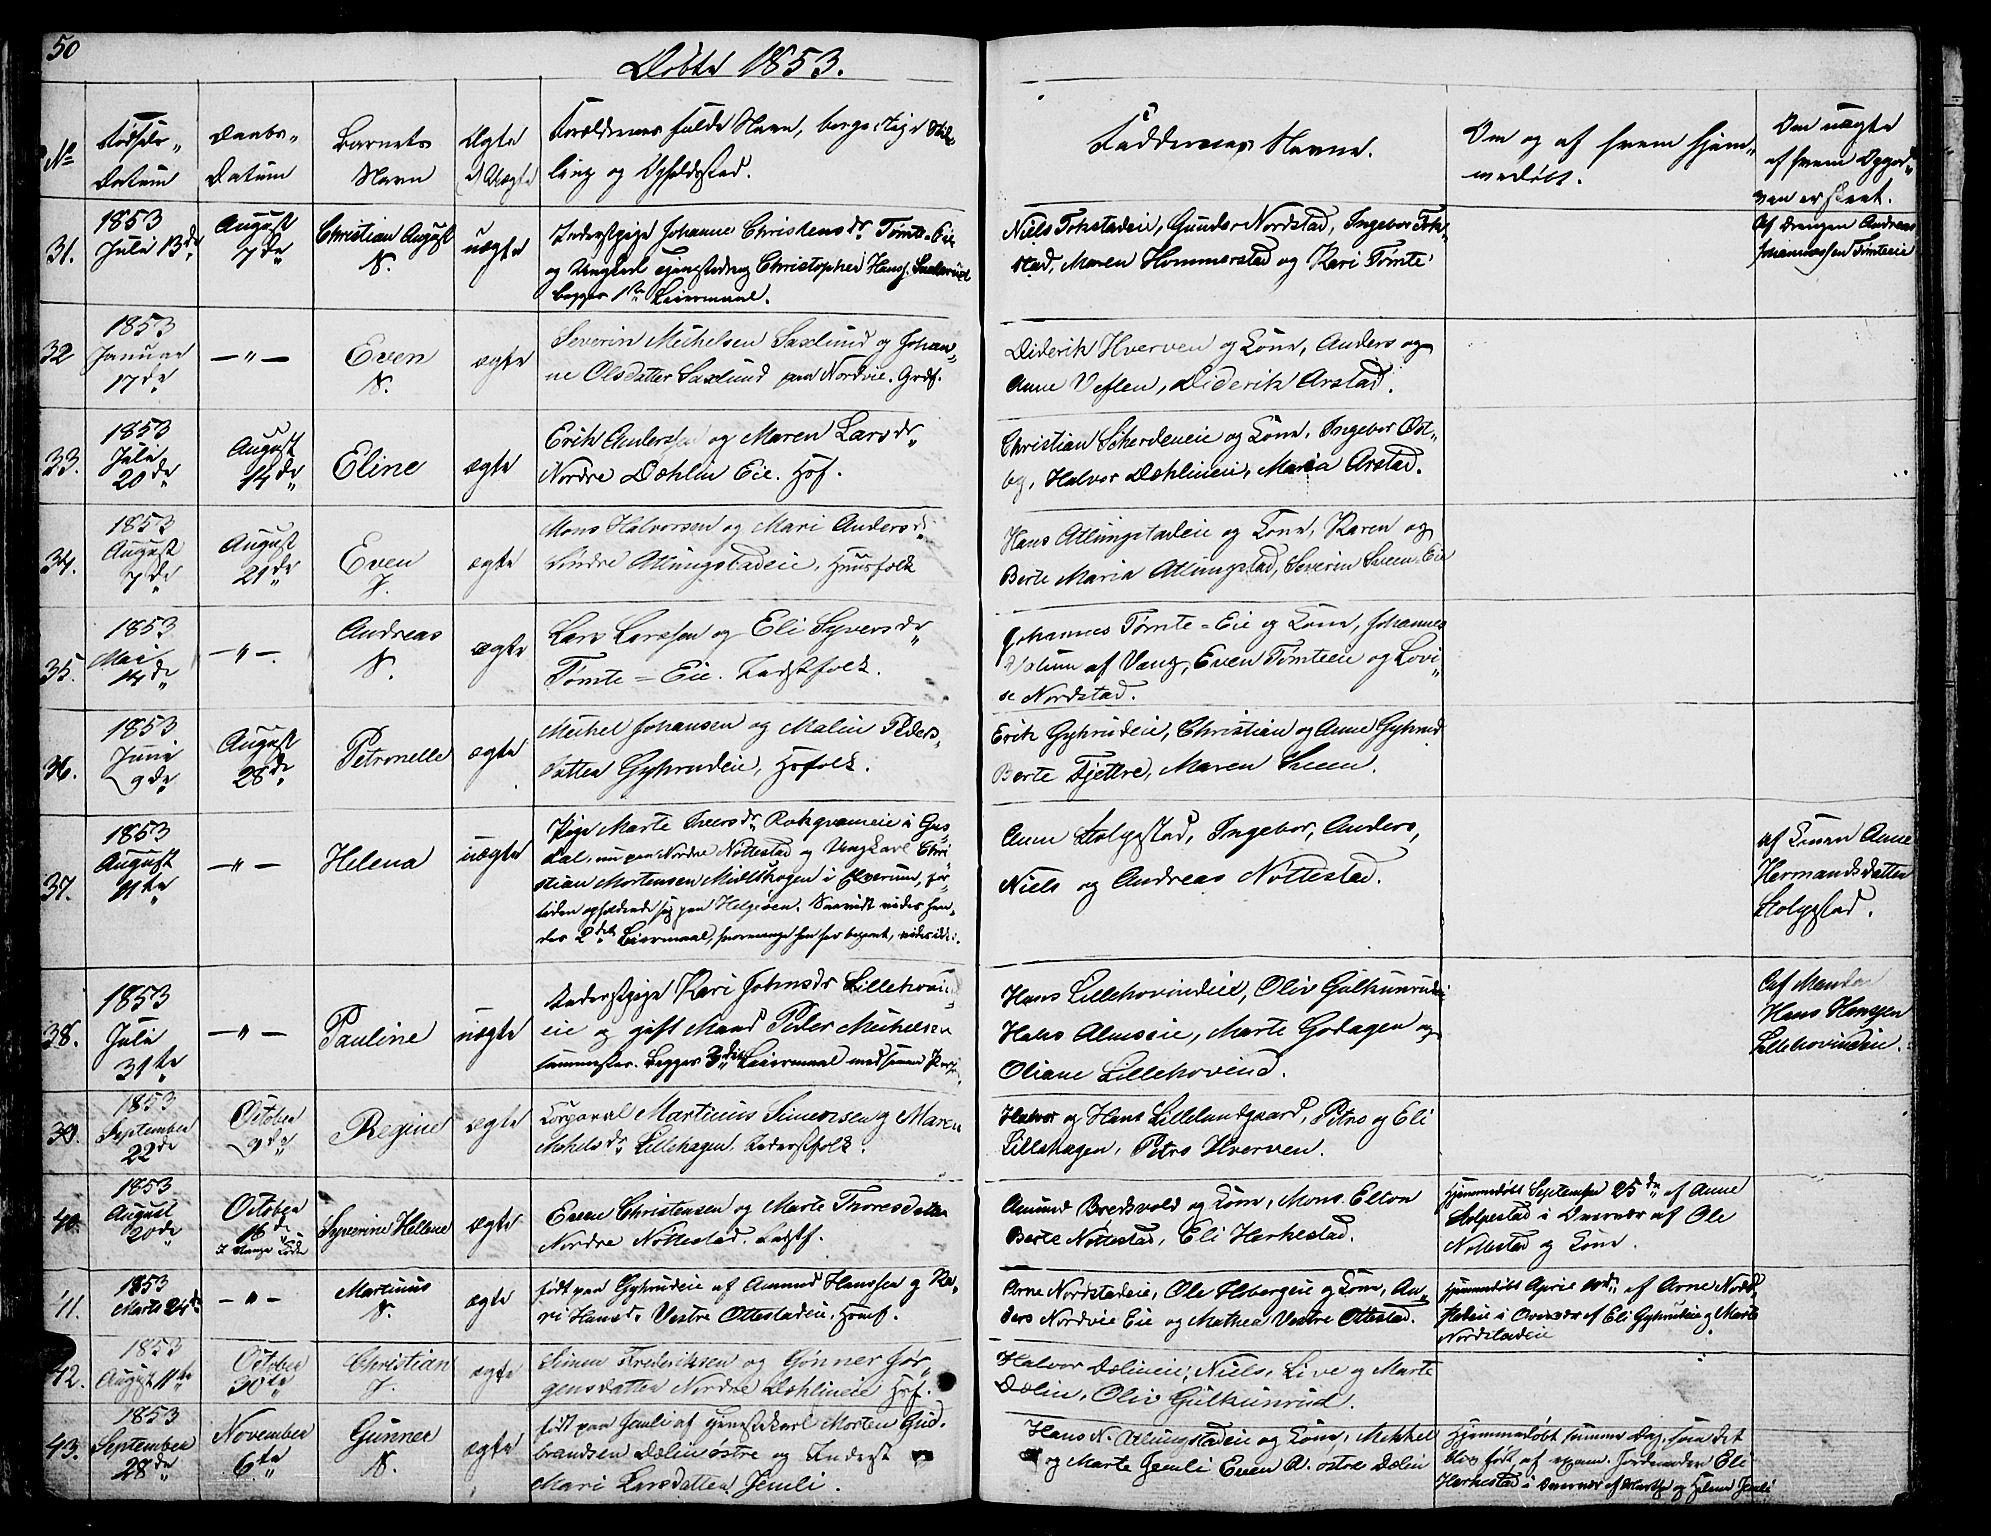 50
Døbte 1853.
No
Fødsels-
Datum
Daabs-
Datum
Barnets
Navn
Ægte
Uægte
Forældrenes fulde Navn, borgerlige Stil-
ling og Opholdssted.
Faddernes Navne.
Om og af hvem hjem-
medøbt.
Om uægte
af hvem Opgiv-
ven er skeet.
31.
1853
Juli 13de
August
7de
Christian August
N.
uægte
Inderstpige Johanne Christensdr Tømte-Eie
og Ungkarl Christopher Hans.
begges 1ste Leiermaal.
Niels Tokstadeie, Gunder Nordstad, Ingebor Tok-
stad, Maren Hommerstad og Kari Tømte
Af drengen Andreas
Johannessen Tømteeie
32
1853
Januar
17de
— " —
Even
N.
ægte
Severin Michelsen Saxlund og Johan-
ne Olsdatter Saxlund paa Nordvie. Grdf.
Diderik Hverven og Kone, Anders og
Anne Veflen, Diderik Arstad.
33.
1853
Juli
20de
August
14de
Eline
ægte
Erik Anderssen og Maren Larsdr
Nordre Dæhlin Eie. Hsf.
Christian Skierdeneie og Kone, Ingebor Øst-
by, Halvor Dæhlineie, Maria Arstad.
34.
1853
August
7de
August
21de
Even
J.
ægte
Mons Halvorsen og Mari Andersdr
Søndre Atlungstadeie, Huusfolk
Hans Atlungstadeie og Kone, Karen og
Berte Maria Atlungstad, Severin Sveen-Eie
35.
1853
Mai
14de
— " —
Andreas
N.
ægte
Lars Larssen og Eli Syversdr
Tømte=Eie. Inderstfolk.
Johannes Tømte=Eie og Kone, Johannes
af Vang, Even Tømteeie og Lovi-
se Nordstad.
36.
1853
Juni
9de
August
28de
Petronelle
ægte
Michel Johansen og Malin Peders-
datter Gyhrudeie, Hsfolk.
Erik Gyhrudeie, Christian og Anne Gyhrud
Berte Fjettre, Maren Sveen.
37.
1853
August
11te
— " —
Helena
uægte
Pige Marte Iversdr i Gus-
dal, nu paa Nordre Nøttestad og Ungkarl Chri-
stian Mortensen i Elverum, for
tiden opholdende sig paa Helgesen. Saavidt vides hen-
des 2det Leiermaal, hvormange han har begaaet, vides ikke.
Anne Stolpestad, Ingebor, Anders,
Niels og Andreas Nøttestad.
af Konen Anne
Hermandsdatter
Stolpestad.
38.
1853
Juli
31te
— " —
Pauline
uægte
Inderstpige Kari Johnsdr Lillehovind
eie og gift Mand Peder Michelsen
sammesteds. Begges 3die Leiermaal med samme Person.
Hans Lillehovindeie, Oliv Gulkunrudeie
Hans Almseie, Marte Godagen og
Oliane Lillehovind.
Af Manden
Hans Hanssen
Lillehovindeie.
39.
1853
September
22de
October
9de
Regine
ægte
Corporal Martinus Simensen og Maren
Mikelsdr Lillehagen. Inderstfolk.
Halvor og Hans Lillelundgaard, Petro og Eli
Lillehagen, Petro Hverven.
40.
1853
August
20de
October
16de
Syverine Hellene
ægte
Even Christensen og Marte Thoresdatter
Nordre Nøttestad. Indstf.
Amund Bredsvold og Kone, Mons Elton
Berte Nøttestad, Eli Herkestad.
Hjemmedøbt September 25de af Anne
Stolpestad i Overvær af Ole
Nøttestad og Kone.
41.
1853
Marts 24de
— " —
Martinus
N.
ægte
født paa Gyhrudeie af Amund Hanssen og Ka-
ri Hansdr Vestre Ottestadeie, Huusf.
Arne Nordstadeie, Ole Hobergeie og Kone, An-
ders Nordvie Eie og Mathea Vestre Ottestad.
Hjemmedøbt April af Arne Nord-
stadeie i Overvær af Eli Gyhrudeie og Marte
Nordstadeie
42.
1853
August 11te
October
30te
Christian
J.
ægte
Simen Frederiksen og Gønner Jør-
gensdatter Nordre Dæhlineie Hsf.
Halvor Dælineie, Niels, Live og Marte
Dælin, Oliv Gulkunrud.
43.
1853
September
28de
November
6te
Gunner
N.
ægte
født paa Jemli af Tjenestekarl Morten Gud-
brandsen Dælin østre og Inderst
Mari Larsdatter Jemli.
Hans N. Atlungstadeie og Kone, Mikkel
og Marte Jemli Even A. østre Dælin
Hjemmedøbt samme Dag, som det
blev født, af exam. Jordemoder Eli
Herkestad i Overvær af Marthe og Helene Jemli